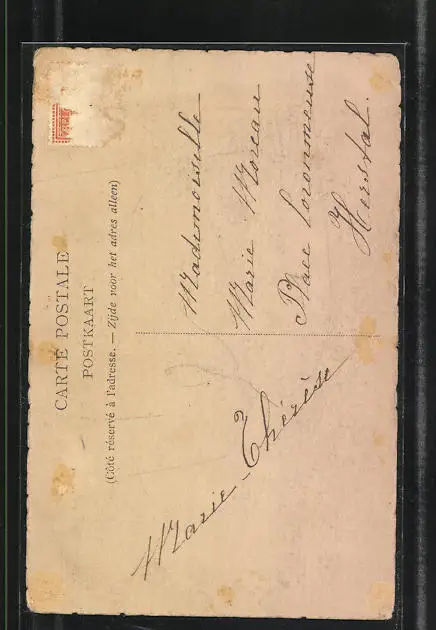 CARTE POSTALE
POSTKAART
(Côté réservé à l'adresse. — Zijde voor het adres alleen)
Marie-Thérèse
Mademoiselle
Marie Moreau
Place Coronmeuse
Herstal.